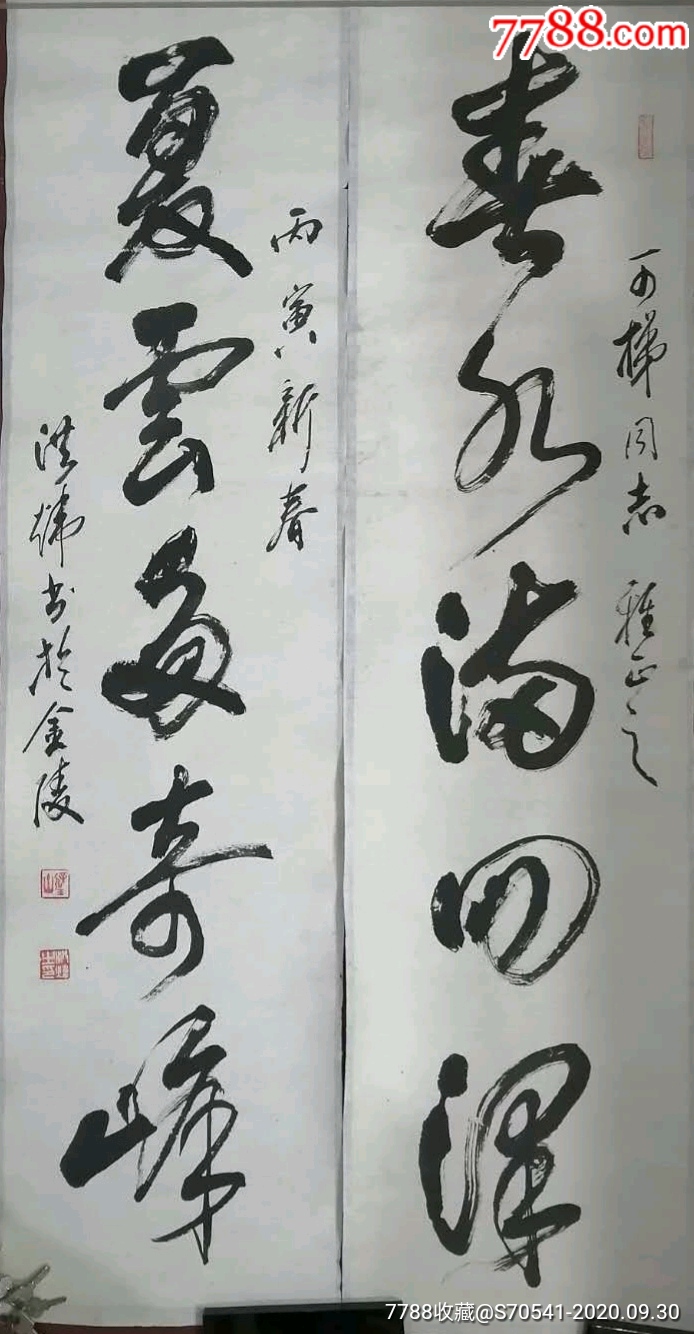 7788.com
春水满四泽
可梯同志 雅正之
夏雲多奇峰
丙寅新春
洪 书於金陵
7788收藏@S70541-2020.09.30